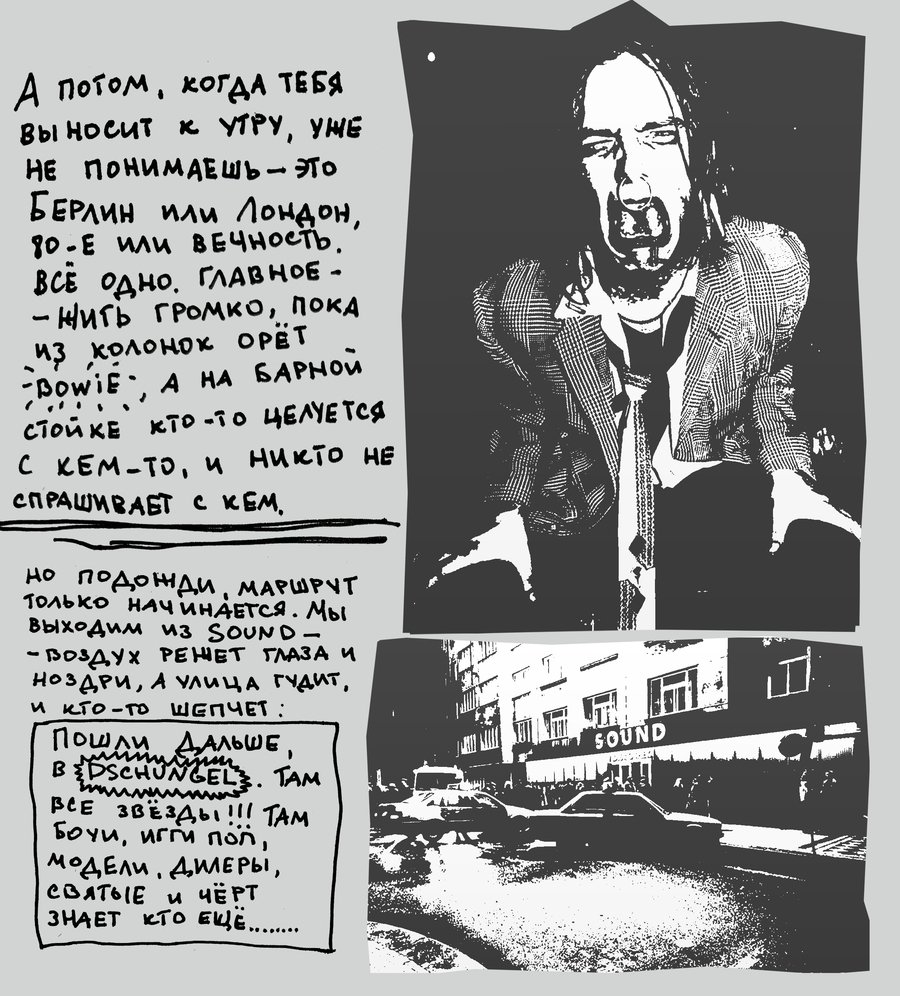 А ПОТОМ, КОГДА ТЕБЯ
ВЫНОСИТ К УТРУ, УЖЕ
НЕ ПОНИМАЕШЬ – ЭТО
БЕРЛИН ИЛИ ЛОНДОН,
80-Е ИЛИ ВЕЧНОСТЬ.
ВСЁ ОДНО. ГЛАВНОЕ -
- ЖИТЬ ГРОМКО, ПОКА
ИЗ КОЛОНОК ОРЁТ
BOWIE, А НА БАРНОЙ
СТОЙКЕ КТО-ТО ЦЕЛУЕТСЯ
С КЕМ-ТО, И НИКТО НЕ
СПРАШИВАЕТ С КЕМ.
НО ПОДОЖДИ, МАРШРУТ
ТОЛЬКО НАЧИНАЕТСЯ. МЫ
ВЫХОДИМ ИЗ SOUND –
- ВОЗДУХ РЕЖЕТ ГЛАЗА И
НОЗДРИ, А УЛИЦА ГУДИТ,
И КТО-ТО ШЕПЧЕТ:
ПОШЛИ ДАЛЬШЕ,
В DSCHUNGEL. ТАМ
ВСЕ ЗВЁЗДЫ!!! ТАМ
БОУИ, ИГГИ ПОП,
МОДЕЛИ, ДИЛЕРЫ,
СВЯТЫЕ И ЧЁРТ
ЗНАЕТ КТО ЕЩЁ........
SOUND